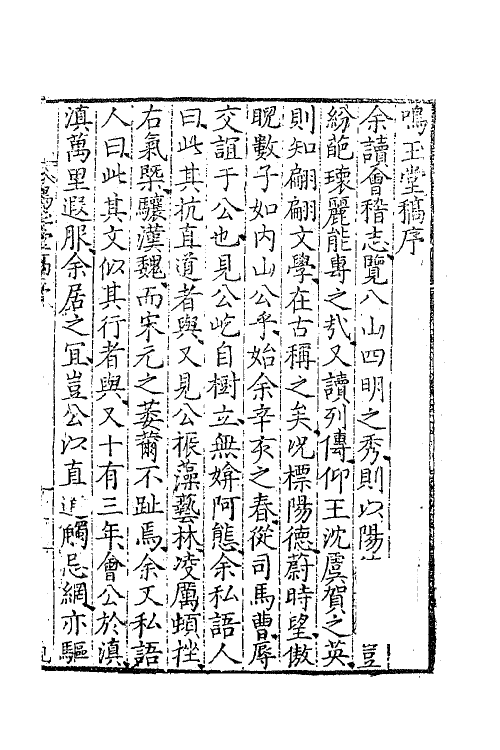 鳴玉堂稿序
余讀會稽志覽八山四明之秀則以陽豈
紛葩瓌麗能專之哉又讀列傳仰王沈虞賀之英
則知翩翩文學在古稱之矣况標陽德蔚時望傲
睨數子如内山公乎始余辛亥之春從司馬曹辱
交誼于公也見公屹自樹立無媕阿態余私語人
曰此其抗直道者與又見公振藻藝林凌厲頓挫
右氣槩驤漢魏而宋元之萎薾不趾焉余又私語
人曰此其文似其行者與又十有三年會公於滇
滇萬里遐服余居之冝豈公以直道觸忌網亦驅